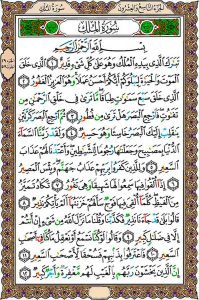 الجزء التاسع والعشرون
سورة الملك
سُورَةُ المُلْكِ
بِسْمِ ٱللَّهِ ٱلرَّحْمَٰنِ ٱلرَّحِيمِ
تَبَٰرَكَ ٱلَّذِى بِيَدِهِ ٱلْمُلْكُ وَهُوَ عَلَىٰ كُلِّ شَىْءٍ قَدِيرٌ ١ ٱلَّذِى خَلَقَ
ٱلْمَوْتَ وَٱلْحَيَوٰةَ لِيَبْلُوَكُمْ أَيُّكُمْ أَحْسَنُ عَمَلًا وَهُوَ ٱلْعَزِيزُ ٱلْغَفُورُ ٢
ٱلَّذِى خَلَقَ سَبْعَ سَمَٰوَٰتٍ طِبَاقًا مَّا تَرَىٰ فِى خَلْقِ ٱلرَّحْمَٰنِ مِن
تَفَٰوُتٍ فَٱرْجِعِ ٱلْبَصَرَ هَلْ تَرَىٰ مِن فُطُورٍ ٣ ثُمَّ ٱرْجِعِ ٱلْبَصَرَ كَرَّتَيْنِ
يَنقَلِبْ إِلَيْكَ ٱلْبَصَرُ خَاسِئًا وَهُوَ حَسِيرٌ ٤ وَلَقَدْ زَيَّنَّا ٱلسَّمَآءَ
ٱلدُّنْيَا بِمَصَٰبِيحَ وَجَعَلْنَٰهَا رُجُومًا لِّلشَّيَٰطِينِ وَأَعْتَدْنَا لَهُمْ عَذَابَ
ٱلسَّعِيرِ ٥ وَلِلَّذِينَ كَفَرُوا۟ بِرَبِّهِمْ عَذَابُ جَهَنَّمَ وَبِئْسَ ٱلْمَصِيرُ ٦
إِذَآ أُلْقُوا۟ فِيهَا سَمِعُوا۟ لَهَا شَهِيقًا وَهِىَ تَفُورُ ٧ تَكَادُ تَمَيَّزُ
مِنَ ٱلْغَيْظِ كُلَّمَآ أُلْقِىَ فِيهَا فَوْجٌ سَأَلَهُمْ خَزَنَتُهَآ أَلَمْ يَأْتِكُمْ نَذِيرٌ ٨
قَالُوا۟ بَلَىٰ قَدْ جَآءَنَا نَذِيرٌ فَكَذَّبْنَا وَقُلْنَا مَا نَزَّلَ ٱللَّهُ مِن شَىْءٍ إِنْ أَنتُمْ
إِلَّا فِى ضَلَٰلٍ كَبِيرٍ ٩ وَقَالُوا۟ لَوْ كُنَّا نَسْمَعُ أَوْ نَعْقِلُ مَا كُنَّا فِىٓ أَصْحَٰبِ
ٱلسَّعِيرِ ١٠ فَٱعْتَرَفُوا۟ بِذَنۢبِهِمْ فَسُحْقًا لِّأَصْحَٰبِ ٱلسَّعِيرِ ١١
إِنَّ ٱلَّذِينَ يَخْشَوْنَ رَبَّهُم بِٱلْغَيْبِ لَهُم مَّغْفِرَةٌ وَأَجْرٌ كَبِيرٌ ١٢